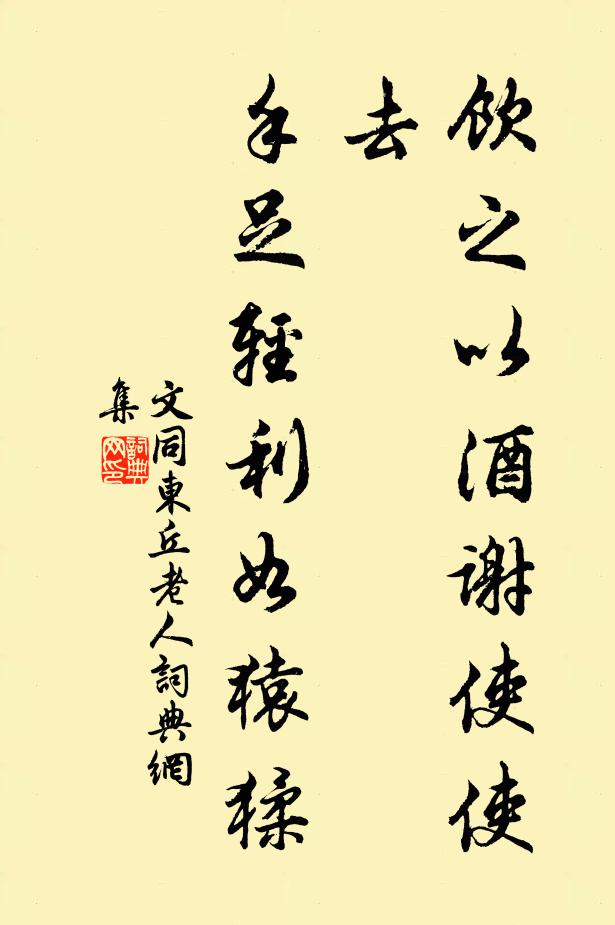 飲之以酒謝使使
去
手足輕利如猿猱
文同東丘老人詞典網
集
詞典網印